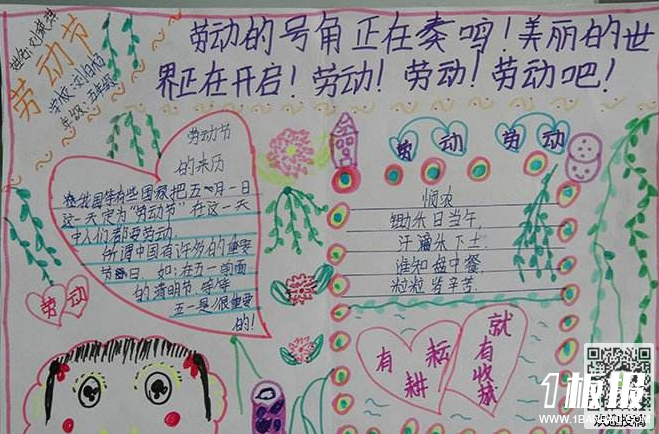 劳动节
学校:刘白杨
年级:五年级
劳动的号角正在奏鸣!美丽的世
界正在开启!劳动!劳动!劳动吧!
劳动节
的来历
在我国年有些国家把五月一日
这一天定为"劳动节"在这一天
中人们都要劳动。
所谓中国有许多的重要
节日,如:在五一前面
的清明节等等
五一是很重要
的!
劳动
劳动
劳动
悯农
锄禾日当午,
汗滴禾下土.
谁知盘中餐,
粒粒皆辛苦.
有耕耘
就有收获
1板报
WWW.1BANBAO.COM
欢迎投稿